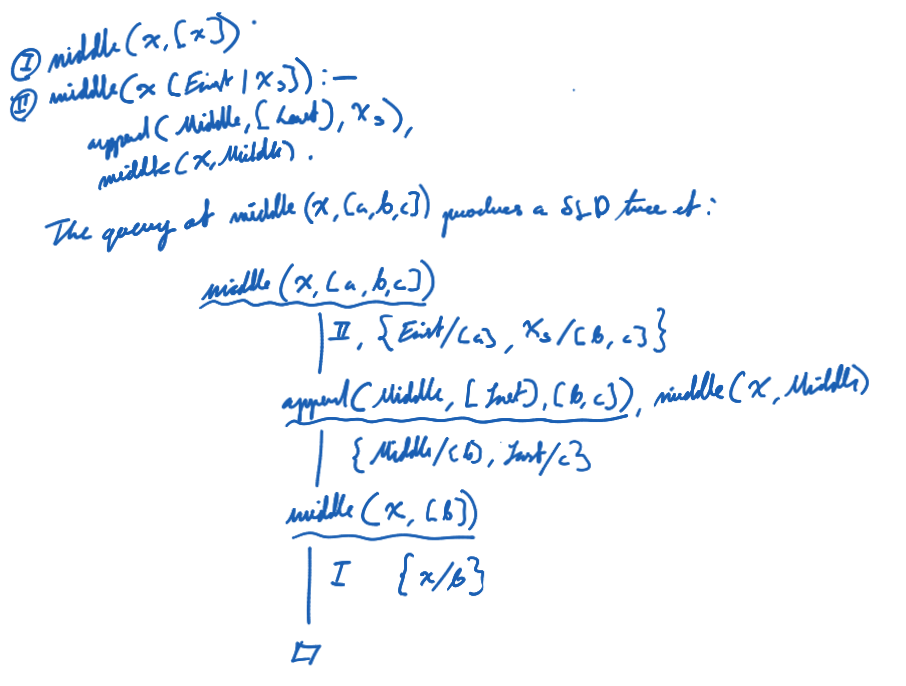 I middle(X, [X]).
II middle(X [First | Xs]) :—
append(Middle, [Last], Xs),
middle(X, Middle).
The query of middle(X, [a, b, c]) produces a SLD tree of:
middle(X, [a, b, c])
II, {First/[a], Xs/[b, c]}
append(Middle, [Last], [b, c]), middle(X, Middle)
{Middle/[b], Last/c}
middle(X, [b])
I {x/b}
□